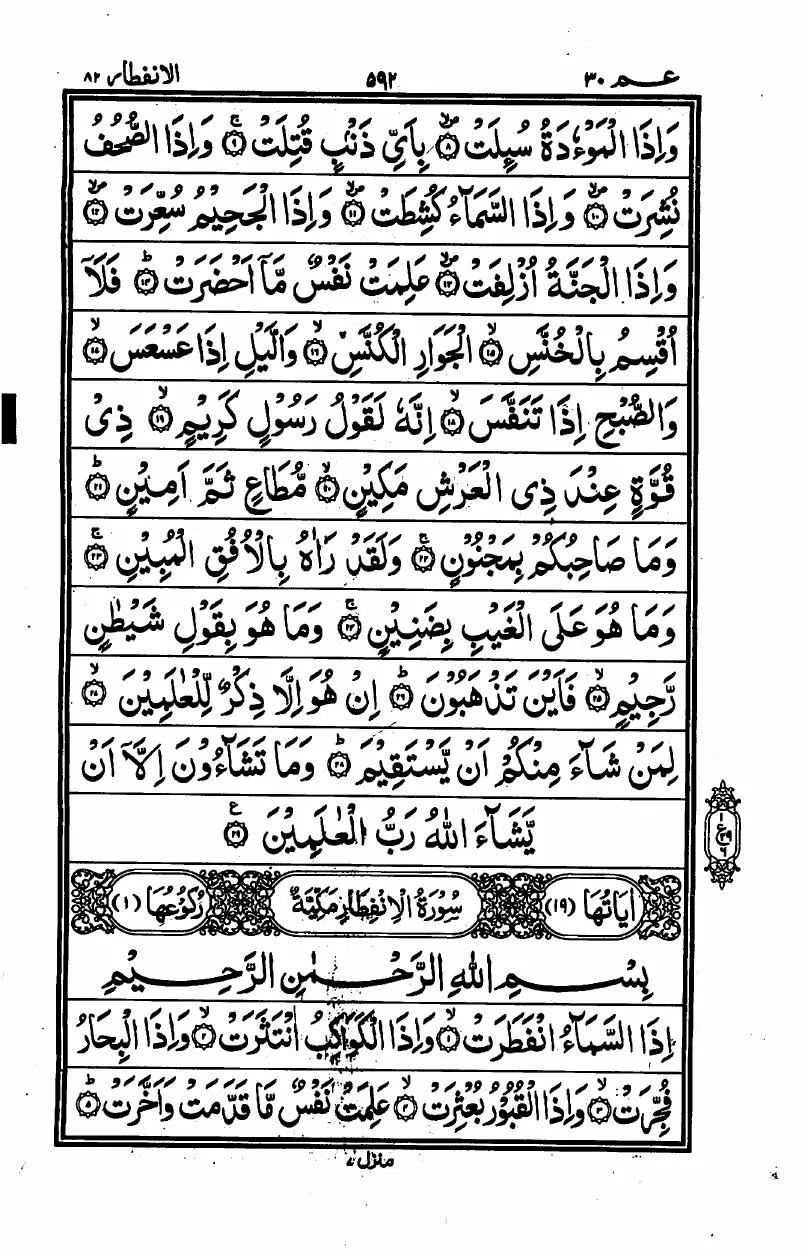 عـم ٣٠
٥٩٢
الانفطار ٨٢
وَاِذَا الْمَوْءٗدَةُ سُىِٕلَتْ ۙ﴿۸﴾ بِاَيِّ ذَنْۢبٍ قُتِلَتْ ۚ﴿۹﴾ وَاِذَا الصُّحُفُ
نُشِرَتْ ۙ﴿۱۰﴾ وَاِذَا السَّمَآءُ كُشِطَتْ ۙ﴿۱۱﴾ وَاِذَا الْجَحِيْمُ سُعِّرَتْ ۙ﴿۱۲﴾
وَاِذَا الْجَنَّةُ اُزْلِفَتْ ۙ﴿۱۳﴾ عَلِمَتْ نَفْسٌ مَّاۤ اَحْضَرَتْ ؕ﴿۱۴﴾ فَلَاۤ
اُقْسِمُ بِالْخُنَّسِ ۙ﴿۱۵﴾ الْجَوَارِ الْكُنَّسِ ۙ﴿۱۶﴾ وَالَّيْلِ اِذَا عَسْعَسَ ۙ﴿۱۷﴾
وَالصُّبْحِ اِذَا تَنَفَّسَ ۙ﴿۱۸﴾ اِنَّهٗ لَقَوْلُ رَسُوْلٍ كَرِيْمٍ ۙ﴿۱۹﴾ ذِيْ
قُوَّةٍ عِنْدَ ذِي الْعَرْشِ مَكِيْنٍ ۙ﴿۲۰﴾ مُّطَاعٍ ثَمَّ اَمِيْنٍ ؕ﴿۲۱﴾
وَمَا صَاحِبُكُمْ بِمَجْنُوْنٍ ۚ﴿۲۲﴾ وَلَقَدْ رَاٰهُ بِالْاُفُقِ الْمُبِيْنِ ۚ﴿۲۳﴾
وَمَا هُوَ عَلَى الْغَيْبِ بِضَنِيْنٍ ۚ﴿۲۴﴾ وَمَا هُوَ بِقَوْلِ شَيْطٰنٍ
رَّجِيْمٍ ۙ﴿۲۵﴾ فَاَيْنَ تَذْهَبُوْنَ ؕ﴿۲۶﴾ اِنْ هُوَ اِلَّا ذِكْرٌ لِّلْعٰلَمِيْنَ ۙ﴿۲۷﴾
لِمَنْ شَآءَ مِنْكُمْ اَنْ يَّسْتَقِيْمَ ؕ﴿۲۸﴾ وَمَا تَشَآءُوْنَ اِلَّاۤ اَنْ
يَّشَآءَ اللّٰهُ رَبُّ الْعٰلَمِيْنَ ۧ﴿۲۹﴾
اٰيَاتُهَا (١٩) سُوْرَةُ الْاِنْفِطَارِ مَكِّيَّةٌ رُكُوْعُهَا (١)
بِسْمِ اللّٰهِ الرَّحْمٰنِ الرَّحِيْمِ
اِذَا السَّمَآءُ انْفَطَرَتْ ۙ﴿۱﴾ وَاِذَا الْكَوَاكِبُ انْتَثَرَتْ ۙ﴿۲﴾ وَاِذَا الْبِحَارُ
فُجِّرَتْ ۙ﴿۳﴾ وَاِذَا الْقُبُوْرُ بُعْثِرَتْ ۙ﴿۴﴾ عَلِمَتْ نَفْسٌ مَّا قَدَّمَتْ وَاَخَّرَتْ ؕ﴿۵﴾
منزل ٧